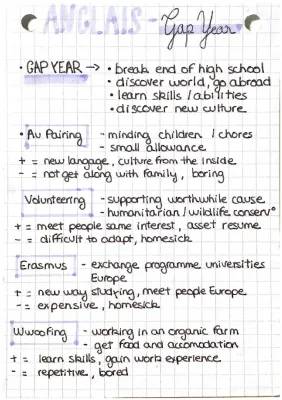 ANGLAIS - Gap Year
• GAP YEAR → • break end of high school
• discover world, go abroad
• learn skills / abilities
• discover new culture.
• Au Pairing - minding children / chores
- small allowance
+ = new langage, culture from the inside
- = not get along with family, boring
Volunteering - supporting worthwhile cause
- humanitarian / wildlife conserv°
+ = meet people same interest, asset resume
- = difficult to adapt, homesick
Erasmus - exchange programme universities
Europe
+ = new way studying, meet people Europe
- = expensive, homesick
Wwoofing - working in an organic farm
- get food and accomodation
+ = learn skills, gain work experience
- = repetitive, bored